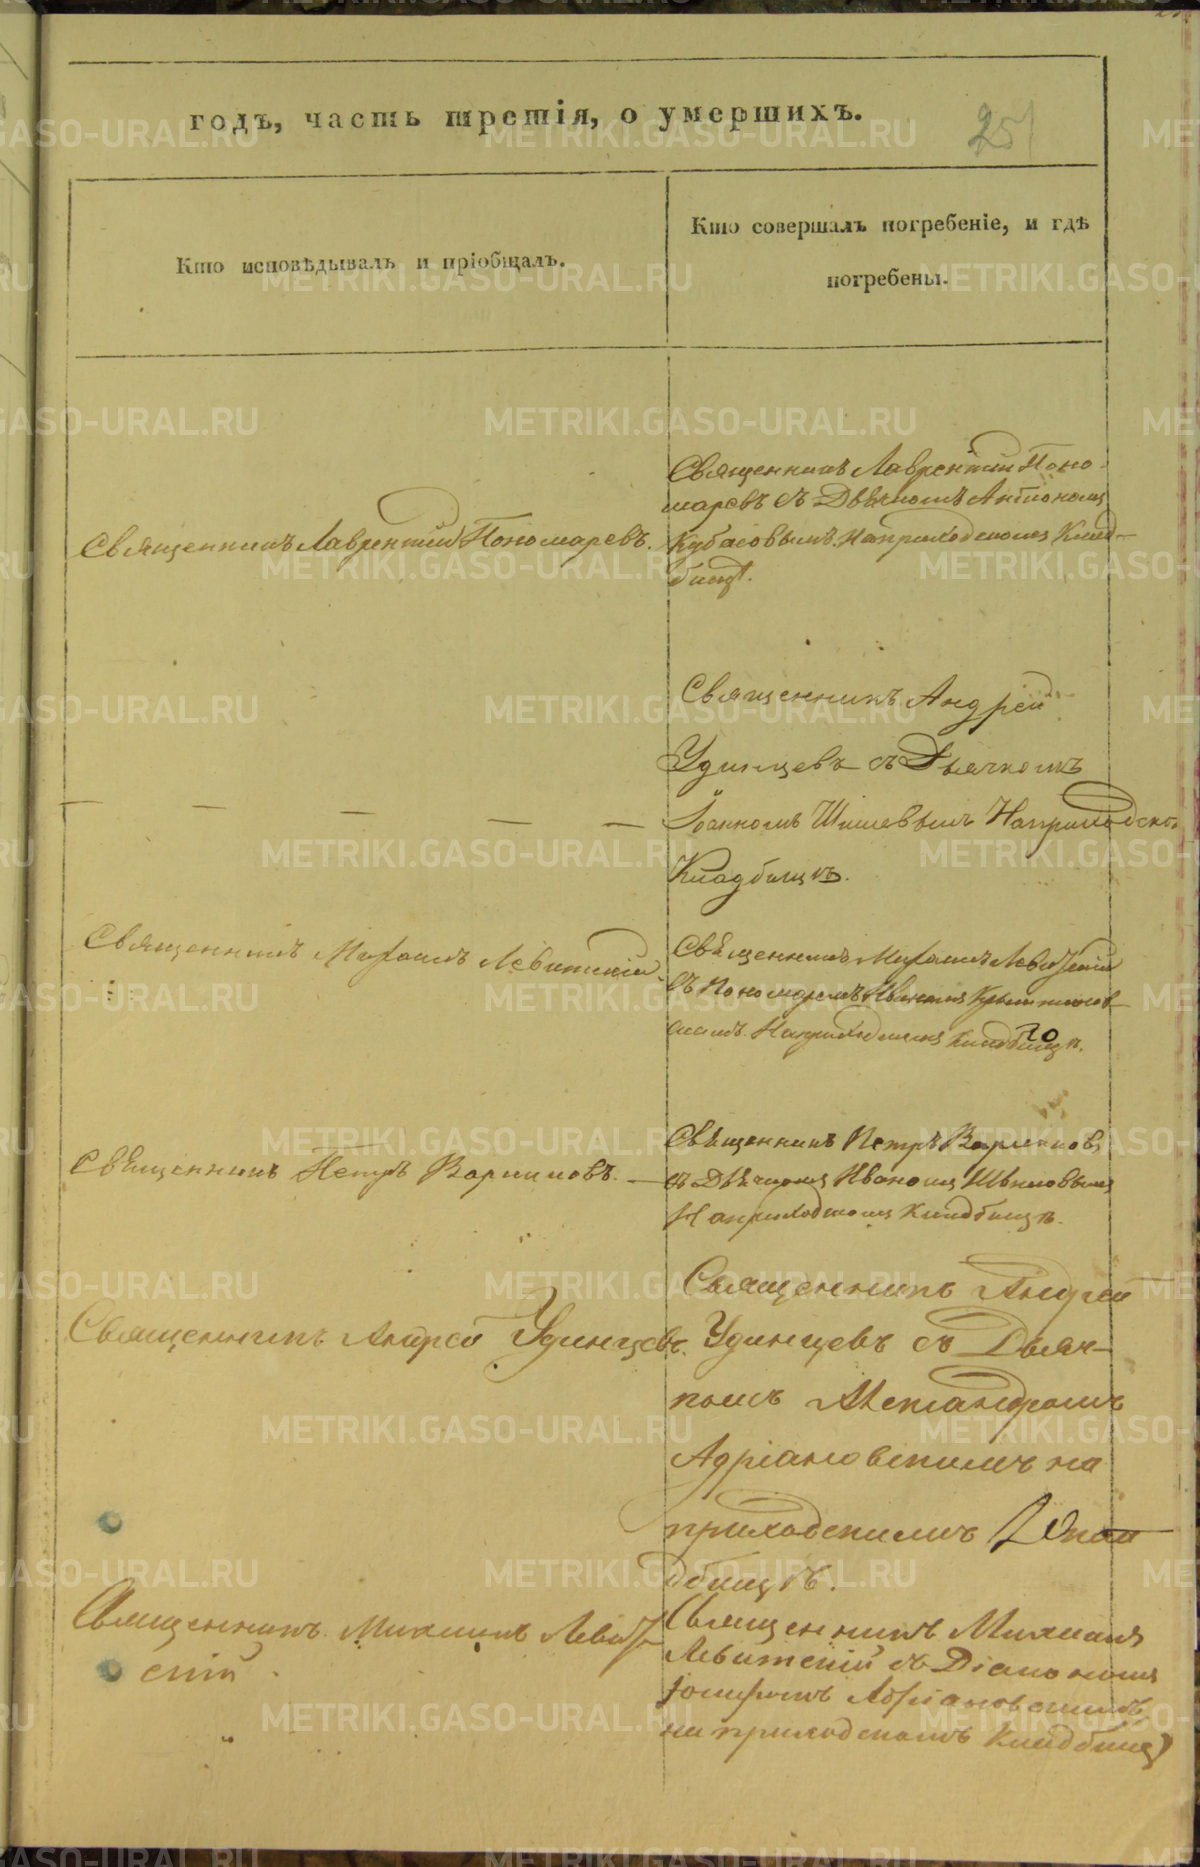 годъ, часть третія, о умершихъ.
251
Кто исповѣдывалъ и пріобщалъ.
Кто совершалъ погребеніе, и гдѣ
погребены.
Священникъ Лаврентій Пономаревъ.
Священникъ Лаврентій Поно
маревъ съ Дьячкомъ
Кубасовымъ. На приходскомъ Клад-
бищѣ.
Священникъ Андрей
Удинцевъ съ Дьячкомъ
Іоанномъ Шишевымъ На приходско
Кладбищѣ.
Священникъ Михаилъ Левитскій
Священникъ Михаилъ Левитскій
съ Пономаремъ
На приходскомъ Кладбищѣ.
Священникъ Петръ
Священникъ Петръ
съ Дьячкомъ Иваномъ
На приходскомъ Кладбищѣ.
Священникъ Андрей Удинцевъ.
Священникъ Андрей
Удинцевъ съ Дьяч-
комъ Александромъ
Адріановскимъ на
приходскимъ Кла
дбищѣ.
Священникъ Михаилъ Левит
скій
Священникъ Михаилъ
Левитскій съ Діакономъ
Іосифомъ Адріановскимъ
на приходскомъ Кладбищѣ
METRIKI.GASO-URAL.RU